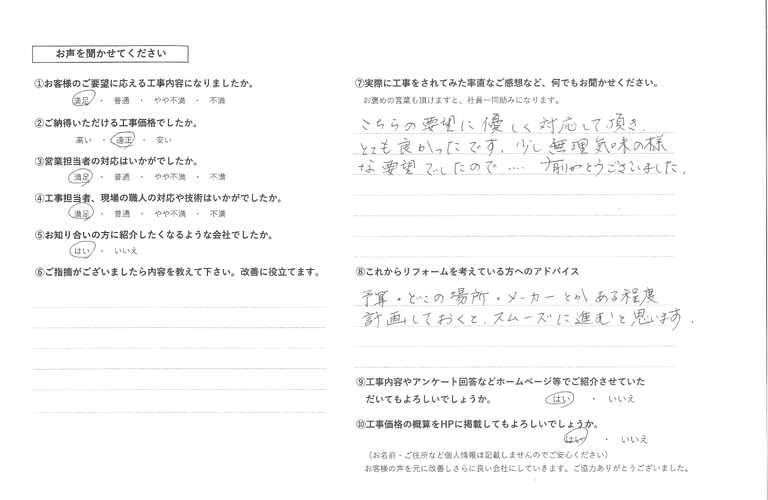 お声を聞かせてください
①お客様のご要望に応える工事内容になりましたか。
満足 ・ 普通 ・ やや不満 ・ 不満
②ご納得いただける工事価格でしたか。
高い ・ 適正 ・ 安い
③営業担当者の対応はいかがでしたか。
満足 ・ 普通 ・ やや不満 ・ 不満
④工事担当者、現場の職人の対応や技術はいかがでしたか。
満足 ・ 普通 ・ やや不満 ・ 不満
⑤お知り合いの方に紹介したくなるような会社でしたか。
はい ・ いいえ
⑥ご指摘がございましたら内容を教えて下さい。改善に役立てます。
⑦実際に工事をされてみた率直なご感想など、何でもお聞かせください。
お褒めの言葉も頂けますと、社員一同励みになります。
こちらの要望に優しく対応して頂き、
とても良かったです。少し無理気味の様
な要望でしたので…. がとうございました。
⑧これからリフォームを考えている方へのアドバイス
予算・どこの場所・メーカーとかある程度
計画しておくと、スムーズに進むと思います。
⑨工事内容やアンケート回答などホームページ等でご紹介させていた
だいてもよろしいでしょうか。 はい ・ いいえ
⑩工事価格の概算をHPに掲載してもよろしいでしょうか。
はい ・ いいえ
（お名前・ご住所など個人情報は記載しませんのでご安心ください）
お客様の声を元に改善しさらに良い会社にしていきます。ご協力ありがとうございました。